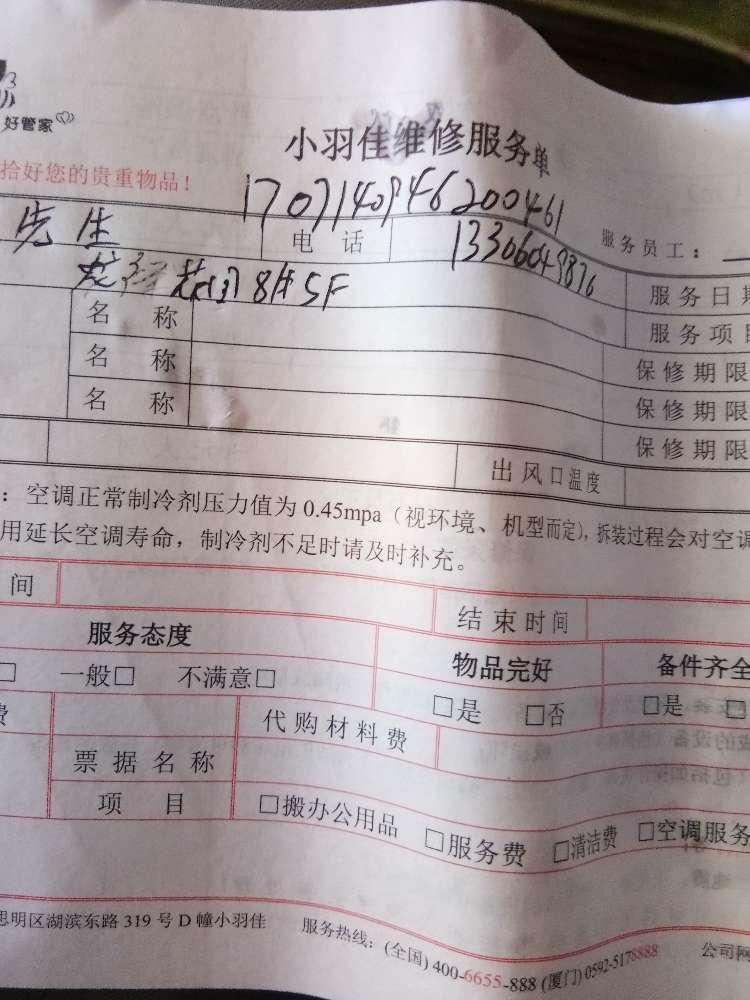 好管家
小羽佳维修服务单
拾好您的贵重物品!
1707140946200461
先生 电 话 服务员工:
8# 5F 服务日期
名 称 服务项目
名 称 保修期限
名 称 保修期限
保修期限
出风口温度
:空调正常制冷剂压力值为 0.45mpa(视环境、机型而定),拆装过程会对空调
用延长空调寿命,制冷剂不足时请及时补充。
间 结束时间
服务态度 物品完好 备件齐全
□ 一般□ 不满意□ □是 □否 □是 □
费 代购材料费
票据名称
项 目 □搬办公用品 □服务费 □清洁费 □空调服务
思明区湖滨东路 319 号 D 幢小羽佳 服务热线:(全国) 400-6655-888 (厦门) 0592-5178888 公司网